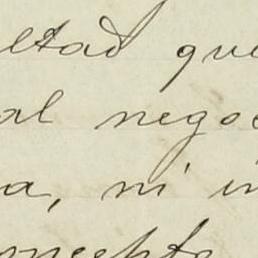 ltad que
al nego
a, ni i
oncepto